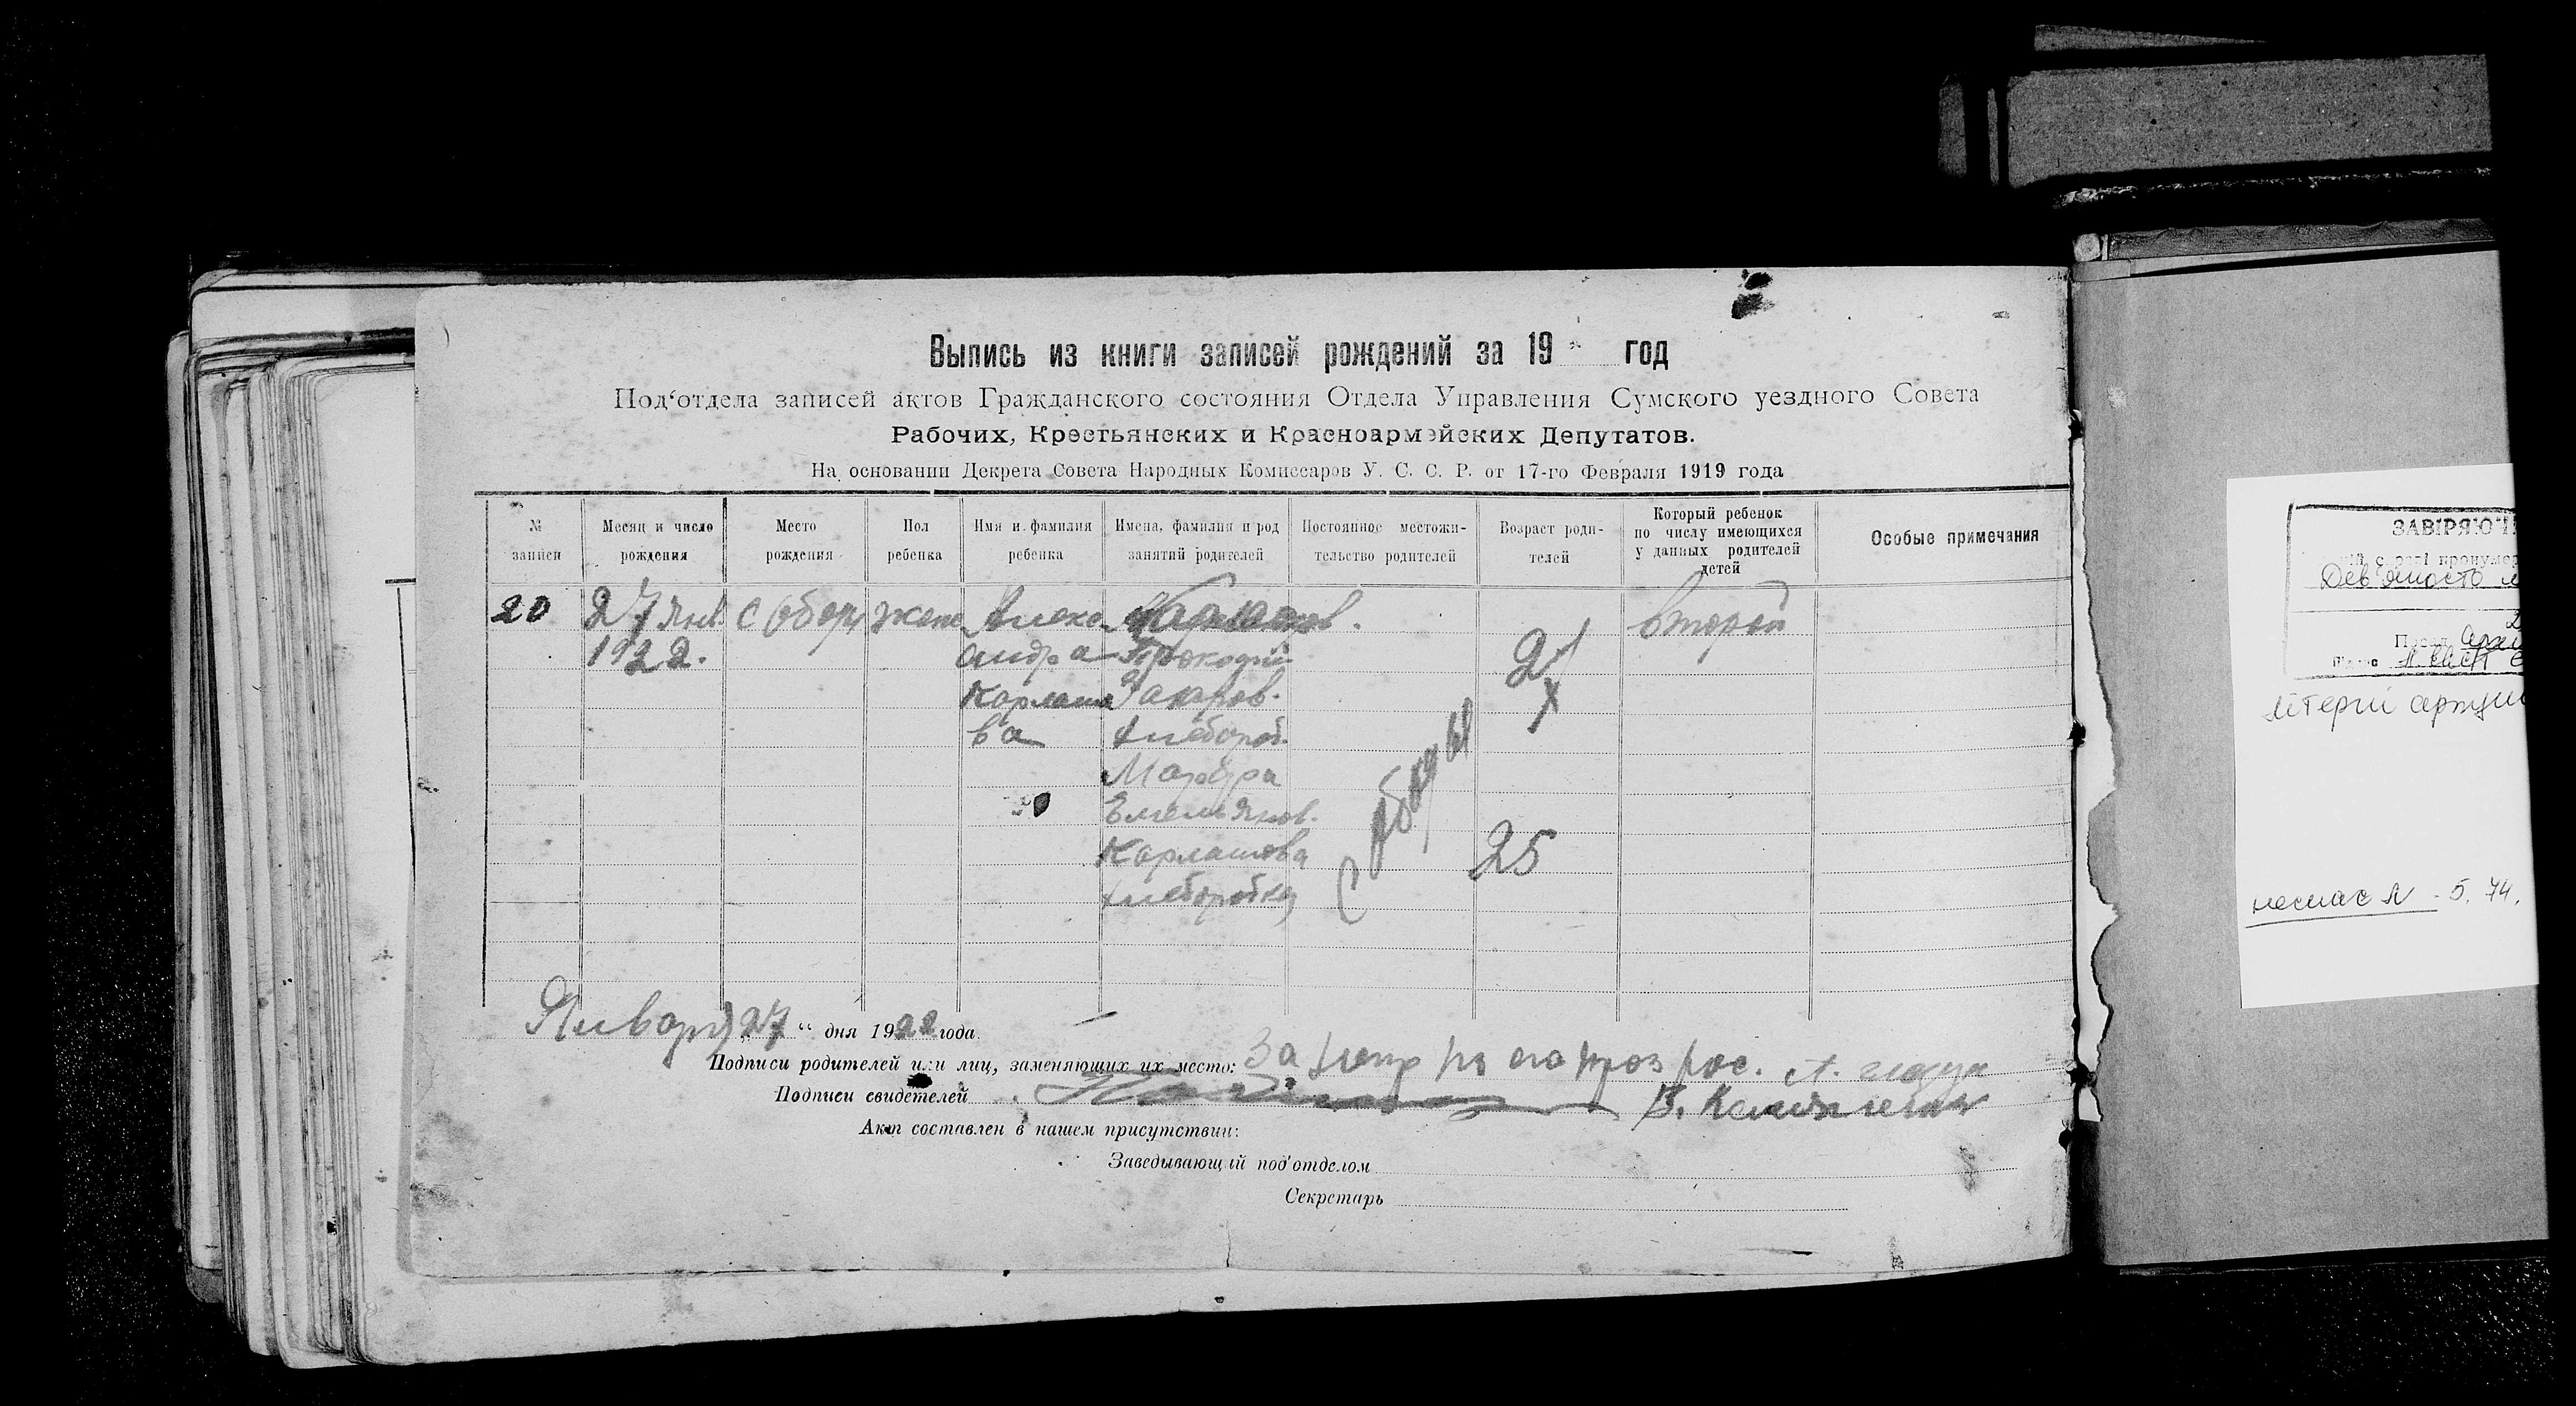 Выпись из книги записей рождений за 19 год
Под'отдела записей актов Гражданского состояния Отдела Управления Сумского уездного Совета
Рабочих, Крестьянских и Красноармейских Депутатов.
На основании Декрета Совета Народных Комиссаров У. С. С. Р. от 17-го Февраля 1919 года
№ записи
Месяц и число рождения
Место рождения
Пол ребенка
Имя и фамилия ребенка
Имена, фамилия и род занятий родителей
Постоянное местожительство родителей
Возраст родителей
Который ребенок по числу имеющихся у данных родителей детей
Особые примечания
20
27 Янв.
1922.
жен
Алекс
андра
Карлашо
ва
Прокофий
Захаров.
хлебороб.
Марфа
Емельянов.
Карлашова
хлеборобка
25
второй
Января 27 " дня 1922 года.
Подписи родителей или лиц, заменяющих их место:
Подписи свидетелей
Акт составлен в нашем присутствии:
Заведывающий под'отделом
Секретарь
ЗАВІРЯЮЧ
Дев'яносто
літерні аркуші
немає № 5, 74,